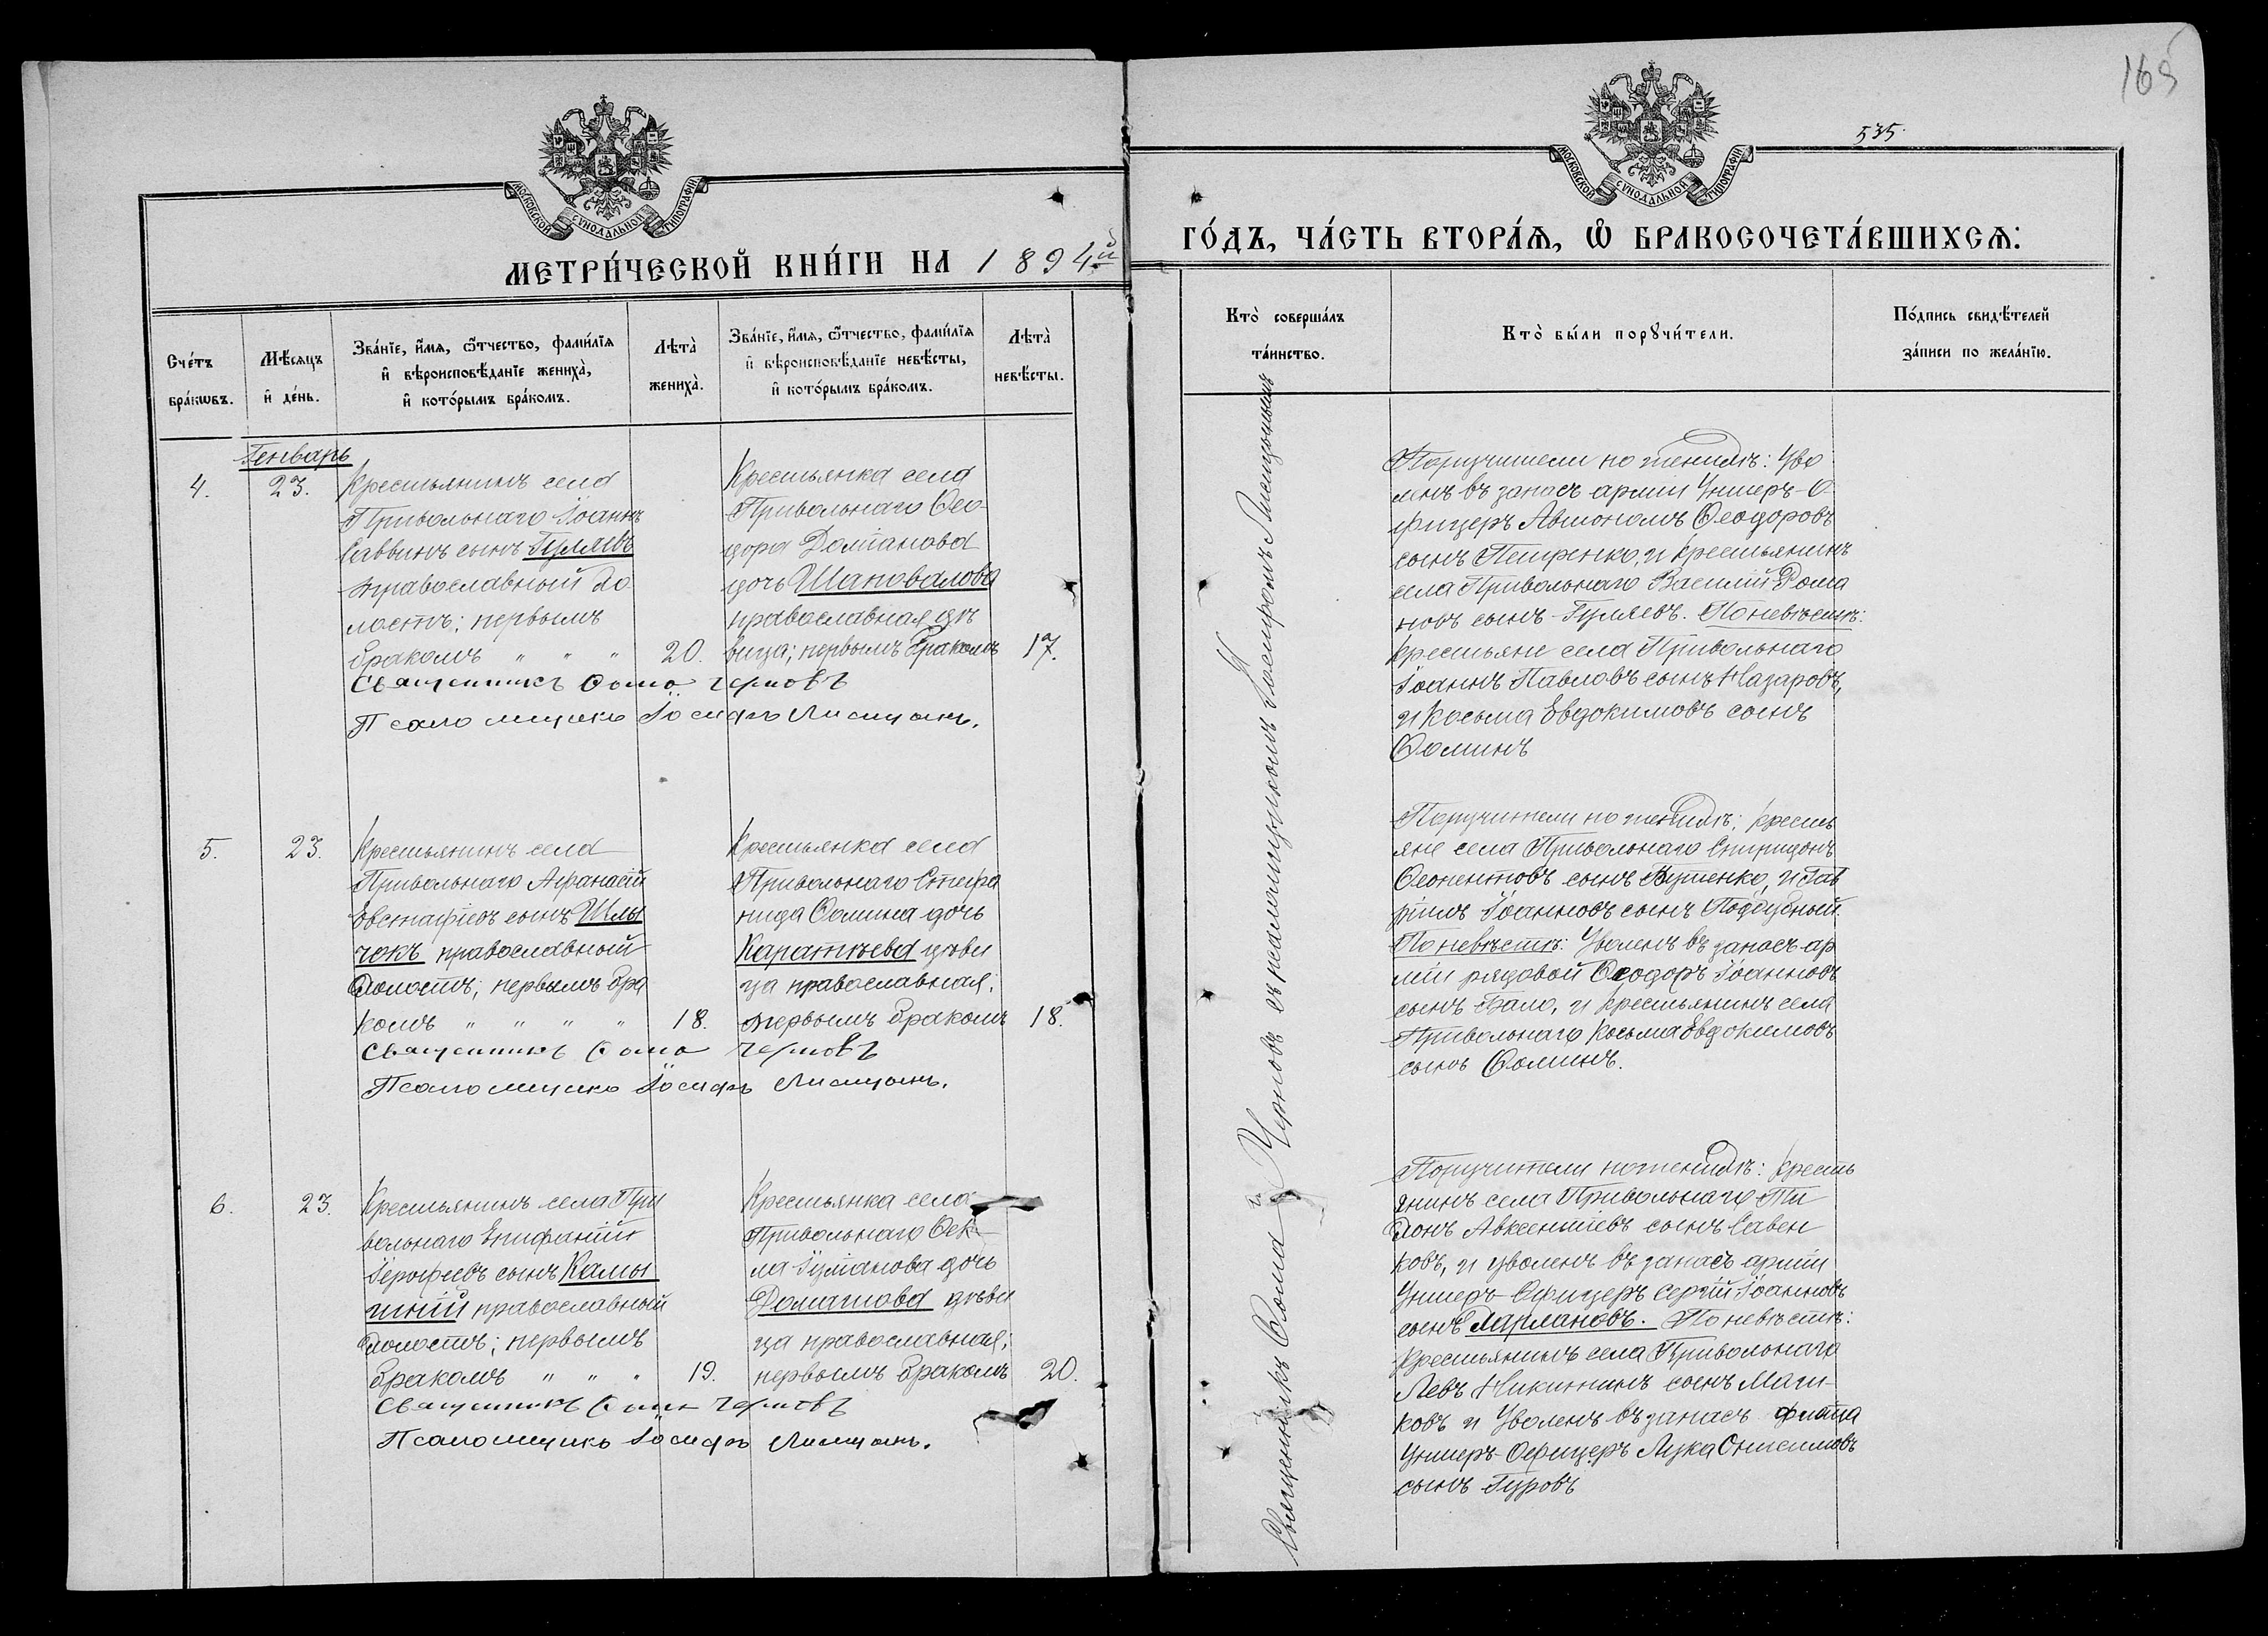 165
535.
МОСКОВСКОЙ СУНОДАЛЬНОЙ ТИПОГРАФІИ
МЕТРИ́ЧЕСКОЙ КНИ́ГИ НА 1894й
Сче́тъ бра́кѡвъ.
Мѣ́сяцъ и҆ де́нь.
Зва́нїе, и҆́мѧ, ѻ҆́тчество, фами́лїѧ
и҆ вѣроисповѣ́данїе женихà,
и҆ кото́рымъ бра́комъ.
Лѣтà женихà.
Зва́нїе, и҆́мѧ, ѻ҆́тчество, фами́лїѧ
и҆ вѣроисповѣ́данїе невѣ́сты,
и҆ кото́рымъ бра́комъ.
Лѣтà невѣ́сты.
Генварь
4.
23.
Крестьянинъ села
Привольнаго Іоаннъ
Саввинъ сынъ Гуляевъ
православный
первымъ
бракомъ " " "
20.
Крестьянка села
Привольнаго Ѳео-
дора
дочь Шаповалова
православная дѣ
вица; первымъ бракомъ
17.
Священникъ Ѳома Черновъ
Псаломщикъ Іосифъ Лисицынъ.
5.
23.
Крестьянинъ села
Привольнаго Аѳанасій
Евстафіевъ сынъ Шлы
чокъ православный
первымъ бра
комъ " " " "
18.
Крестьянка села
Привольнаго Стефа
нида Ѳомина дочь
Каратѣева дѣви
ца православная;
первымъ бракомъ
18.
Священникъ Ѳома Черновъ
Псаломщикъ Іосифъ Лисицынъ.
6.
23.
Крестьянинъ села При
вольнаго Епифаній
Іерофеевъ сынъ Камы
шній православный
первымъ
бракомъ " " "
19.
Крестьянка села
Привольнаго Ѳек-
ла дочь
Домашова дѣви
ца православная;
первымъ бракомъ
20.
Священникъ Ѳома Черновъ
Псаломщикъ Іосифъ Лисицынъ.
МОСКОВСКОЙ СУНОДАЛЬНОЙ ТИПОГРАФІИ
ГО́ДЪ, ЧА́СТЬ ВТОРА́Ѧ, Ѽ БРАКОСОЧЕТА́ВШИХСѦ:
Ктò соверша́лъ
та́инство.
Ктò бы́ли порꙋчи́тели.
По́дпись свидѣ́телей
за́писи по жела́нїю.
Священникъ Ѳома Черновъ съ псаломщикомъ Іосифомъ Лисицынымъ
Поручители по женихѣ: Уво
ленъ въ запасъ арміи Унтеръ-О-
фицеръ Автономъ Ѳеодоровъ
сынъ Петренко, и крестьянинъ
села Привольнаго Василій Рома
новъ сынъ Гуляевъ. По невѣстѣ:
Крестьяне села Привольнаго
Іоаннъ Павловъ сынъ Назаровъ,
и Косьма Евдокимовъ сынъ
Ѳоминъ
Поручители по женихѣ: кресть
яне села Привольнаго Спиридонъ
Ѳеопентовъ сынъ Бутенко, и Гав
ріилъ Іоанновъ сынъ Поддубный.
По невѣстѣ: Уволенъ въ запасъ ар
міи рядовой Ѳеодоръ Іоанновъ
сынъ Бало, и крестьянинъ села
Привольнаго Косьма Евдокимовъ
сынъ Ѳоминъ.
Поручители по женихѣ: Кресть
янинъ села Привольнаго
Авксентіевъ сынъ Савен
ковъ, и уволенъ въ запасъ арміи
Унтеръ-Офицеръ Сергій Іоанновъ
сынъ Дарлановъ. По невѣстѣ:
Крестьянинъ села Привольнаго
Левъ Никитинъ сынъ Маш-
ковъ и Уволенъ въ запасъ флота
Унтеръ-Офицеръ Лука Онисимовъ
сынъ Гуровъ